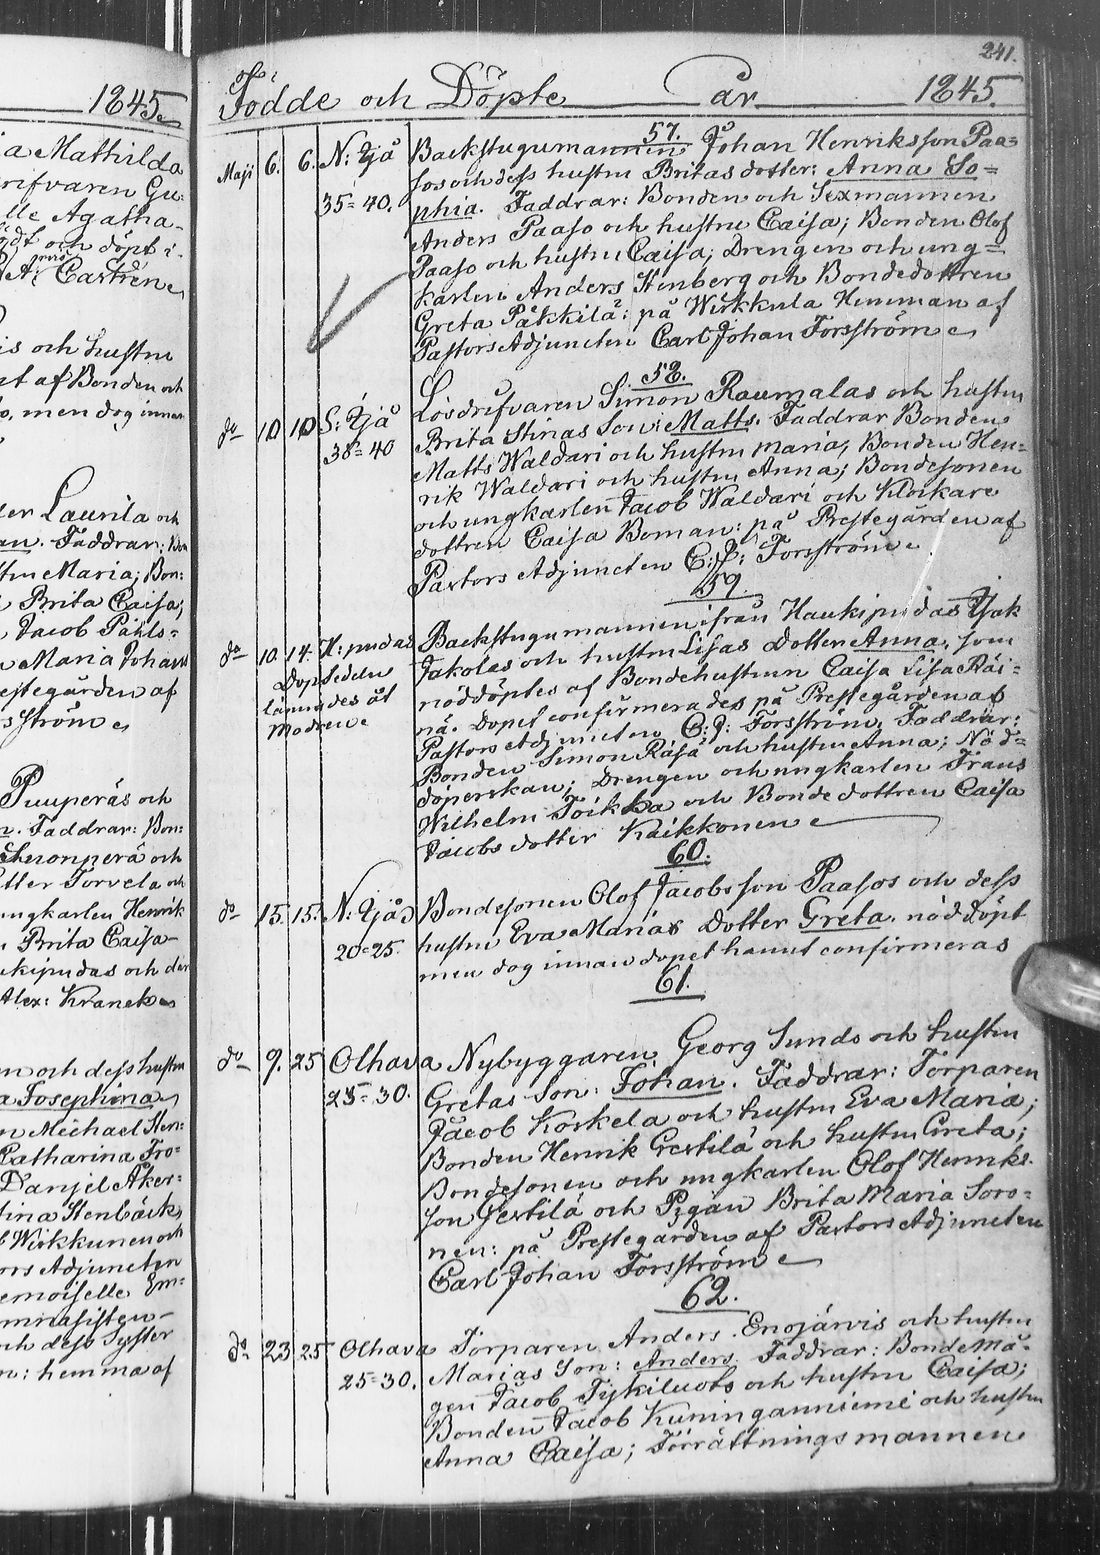 1845.
a Mathilda
rifvaren Gu-
lle Agatha-
och döpt i
Castrén
is och hustru
af Bonden och
men dog innan
Laurila och
Faddrar: Bon
Maria; Bon:
Brita Caisa;
Jacob Påhls-
Maria Johans
restegården af
sström
Puuperäs och
Faddrar: Bon:
och
Torvela och
ungkarlen Henrik
Brita Caisa
ukipudas och der
Alex: Kranck
och dess hustru
a Josephina
Michael Hen:
Catharina Fro-
Danjel Åker-
tina Stenbäck
Wirkkunen och
ors Adjuncten
emoiselle Em-
mnasisten
och dess Syster
n: hemma af
241.
Födde och Döpte år 1845.
57.
Maji 6. 6. N: Ijå Backstugumannen Johan Henriksson Paa-
35-40. sos och dess hustru Britas dotter: Anna So-
phia. Faddrar: Bonden och Sexmannen
Anders Paaso och hustru Caisa; Bonden Olof
Paaso och hustru Caisa; Drengen och ung-
karlen Anders Stenberg och Bondedottren
Greta Päkkilä: på Wirkkula Hemman af
Pastors Adjuncten Carl Johan Forsström
58.
do 10 10 S: Ijå Lösdrifvaren Simon Raumalas och hustru
38-40 Brita Stinas Son: Matts. Faddrar Bonden
Matts Waldari och hustru Maria; Bonden Hen-
rik Waldari och hustru Anna; Bondesonen
och ungkarlen Jacob Waldari och Klockare
dottren Caisa Boman: på Prestegården af
Pastors Adjuncten C: J: Forsström.
59
do 10. 14. H: pudas Backstugumannen ifrån Haukipudas Isak
Dopsedeln Jakolas och hustru Lisas Dotter Anna, som
lämnades åt nöddöptes af Bondehustrun Caisa Lisa Räi-
Modren nä. Dopet confirmerades på Prestegården af
Pastors Adjuncten C: J: Forsström. Faddrar:
Bonden Simon Räsä och hustru Anna; Nöd-
döperskan; Drengen och ungkarlen Frans
Wilhelm Toikka och Bondedottren Caisa
Jacobsdotter Kaikkonen
60.
do 15. 15. N: Ijå Bondesonen Olof Jacobsson Paasos och dess
20-25. hustru Eva Marias Dotter Greta. nöddöpt
men dog innan dopet hannt confirmeras
61.
do 9. 25 Olhava Nybyggaren Georg Sunds och hustru
25-30. Gretas Son: Johan. Faddrar: Torparen
Jacob Korkela och hustru Eva Maria;
Bonden Henrik Gertilä och hustru Greta;
Bondesonen och ungkarlen Olof Henriks-
son Gertilä och Pigan Brita Maria Soro-
nen: på Prestegården af Pastors Adjuncten
Carl Johan Forsström
62.
do 23 25 Olhava Torparen Anders Enojärvis och hustru
25-30. Marias Son: Anders. Faddrar: Bonde Må-
gen Jacob Tyskiluoto och hustru Caisa;
Bonden Jacob Kuninganniemi och hustru
Anna Caisa; Förrättningsmannen